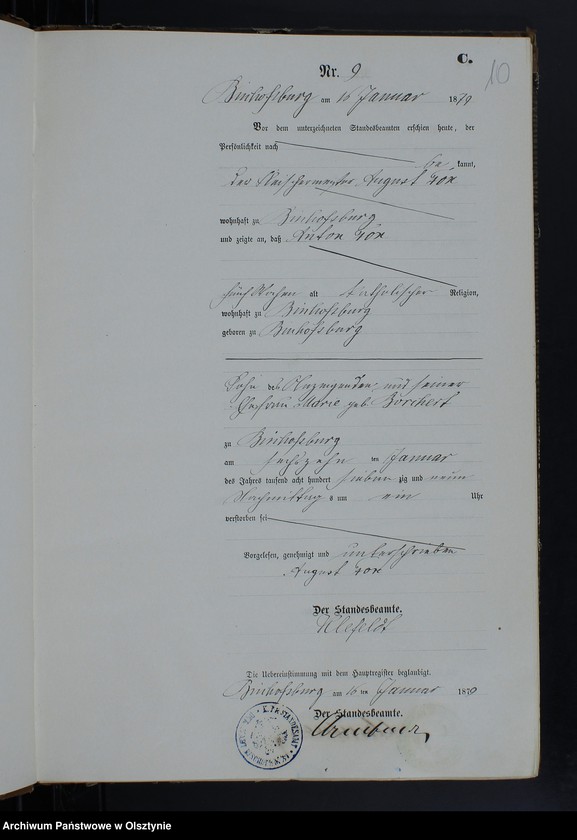 C.
10
Nr. 9
Bischofsburg am 16 Januar 1879
Vor dem unterzeichneten Standesbeamten erschien heute, der
Persönlichkeit nach
be kannt,
der Fleischermeister August
wohnhaft zu Bischofsburg
und zeigte an, daß Anton
fünf Wochen alt katholischer Religion,
wohnhaft zu Bischofsburg
geboren zu Bischofsburg
Sohn des Anzeigenden und seiner
Ehefrau Marie geb. Borchert
zu Bischofsburg
am sechszehn ten Januar
des Jahres tausend acht hundert sieben zig und neun
Nachmittags um ein Uhr
verstorben sei
Vorgelesen, genehmigt und unterschrieben
August
Der Standesbeamte.
Die Uebereinstimmung mit dem Hauptregister beglaubigt.
Bischofsburg am 16 ten Januar 1879
Der Standesbeamte.
Archiwum Państwowe w Olsztynie